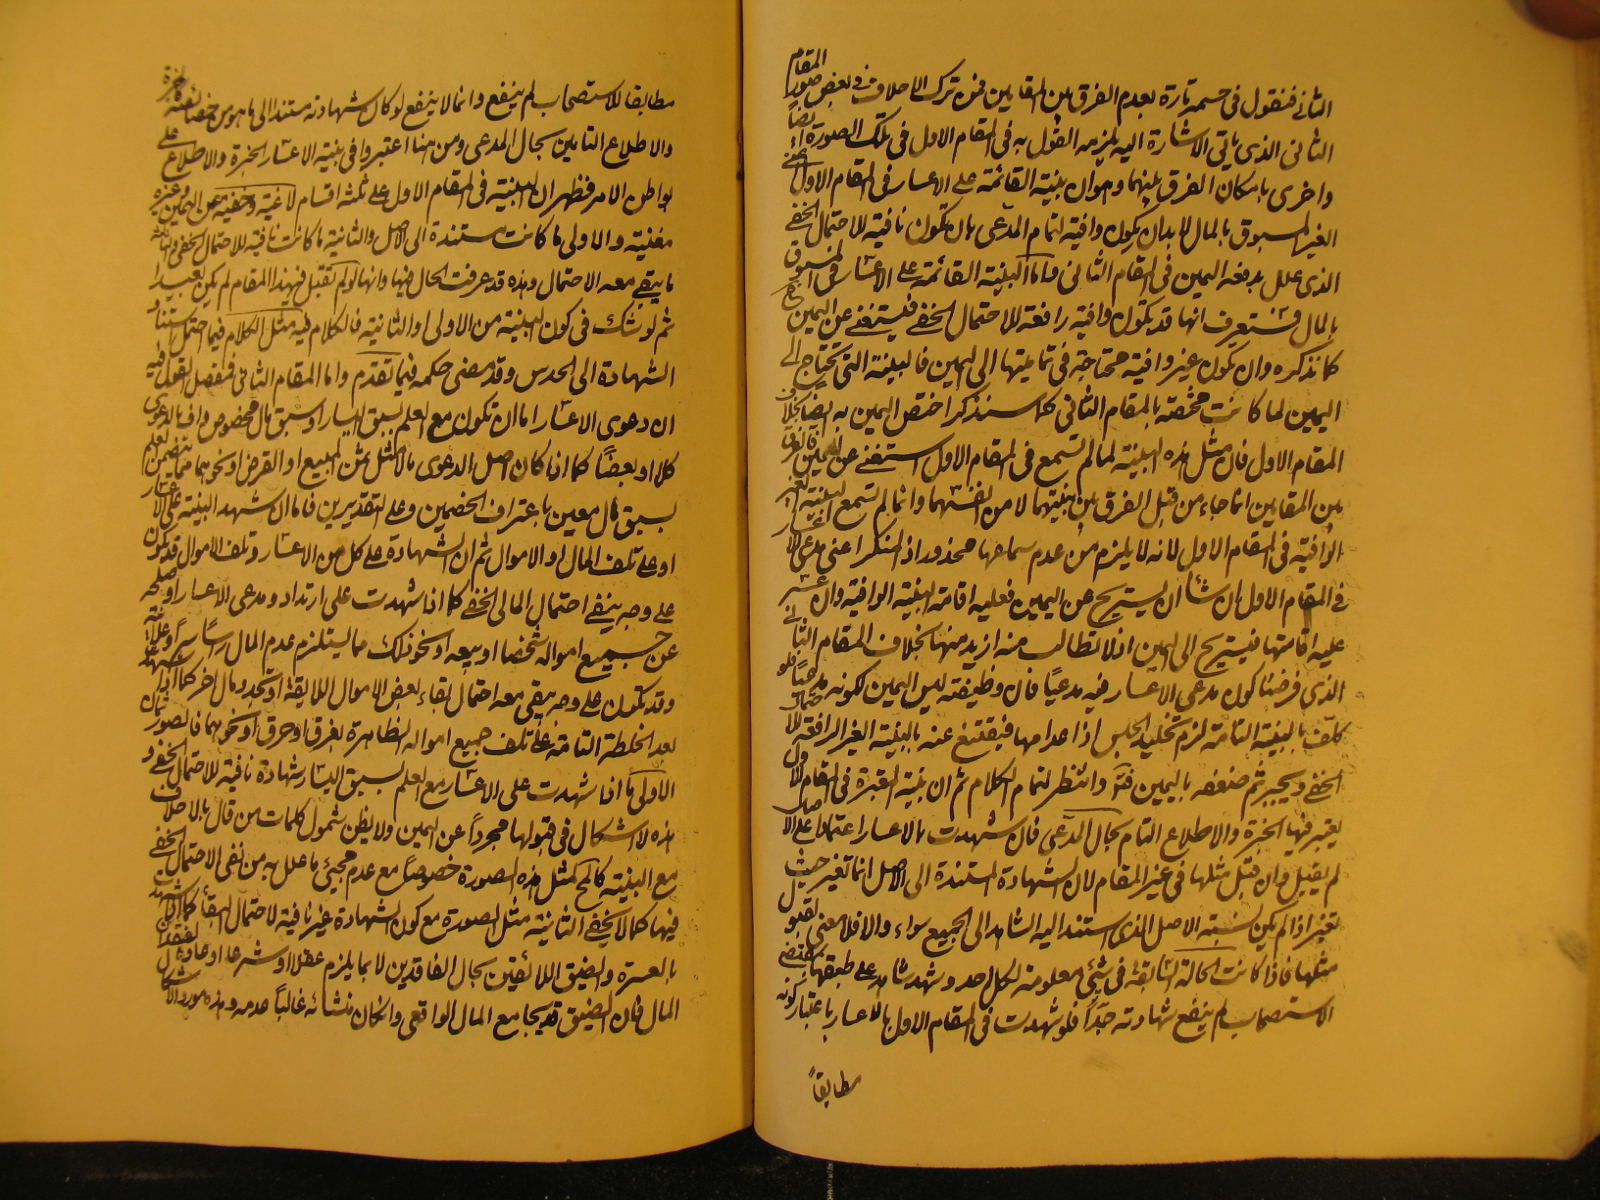 الثانى فنقول فى حسمه تارة بعدم الفرق بين المقامين فمن ترك الاحلاف فى بعض صور المقام
الثانى الذى ياتى الاشارة اليه يلزمه القول به فى المقام الاول فى تلك الصورة ايضاً
واخرى بامكان الفرق بينهما وهو ان بنية القائمة على الاعسار فى المقام الاول اعنى
الغير المسبوق بالمال لابد ان يكون وافية لتمام المدعى بان تكون نافية للاحتمال الخفى
الذى علل بدفعه اليمين فى المقام الثانى واما البينة القائمة على الاعسار فى المسبوق
بالمال فستعرف انها قد يكون وافية رافعة للاحتمال الخفى فيستغنى عن اليمين
كما نذكره وان يكون غير وافية محتاجة فى تماميتها الى اليمين فالبينة التى تحتاج الى
اليمين لما كانت مختصة بالمقام الثانى كما سنذكر اختص اليمين به ايضا بخلاف
المقام الاول فان مثل هذه البينة لما لم تسمع فى المقام الاول استغنى عن اليمين فالفرق
بين المقامين انما جاء من قبل الفرق بين بنيتهما لا من انفسهما وانما لم تسمع البينة الغير
الوافية فى المقام الاول لانه لا يلزم من عدم سماعها محذور اذ المنكر اعنى مدعى الاعسار
فى المقام الاول ان شاء ان يستريح عن اليمين فعليه اقامة البنية الوافية وان عسر
عليه اقامتها فيستريح الى اليمين اذ لا تطالب منه ازيد منها بخلاف المقام الثانى
الذى فرضنا كون مدعى الاعسار فيه مدعياً فان وظيفته ليس اليمين لكونه مدعياً فلو
كلف بالبينة التامة لزم تخليد الحبس اذا عدامها فيقتنع عنه بالبينة الغير الرافعة للاحتمال
الخفى ويجبر ثم ضعفه باليمين فتو وانتظر لتمام الكلام ثم ان بنية المعتبرة فى المقام الاول
يعتبر فيها الخبرة والاطلاع التام بحال المدعى فان شهدت بالاعسار اعتمادا على الاصل
لم يقبل وان قبل مثلها فى غير المقام لان الشهادة المستندة الى الاصل انما تغير حيث
تغير اذا لم يكن نسبة الاصل الذى استند اليه الشاهد الى الجميع سواء والا فلا معنى لقبول
مثلها فاذا كانت الحالة السابقة فى شئ معلومة لكل احد وشهد شاهد على طبقها بمقتضى
الاستصحاب لم ينفع شهادته جدّاً فلو شهدت فى المقام الاول بالاعسار باعتبار كونه
مطابقاً
مطابقا للاستصحاب لم ينفع وانما لا ينفع لو كان شهادته مستندا الى ما هو من خصائصه الخبرة
والاطلاع التامين بحال المدعى ومن هنا اعتبروا فى بينة الاعسار الخبرة والاطلاع على
بواطن الامر فظهر ان البينة فى المقام الاول على ثلثة اقسام لاغية ومغنية عن اليمين وغيره
مغنية والاولى ما كانت مستندة الى الاصل والثانية ما كانت نافية للاحتمال الخفى والثالثة
ما يبقى معه الاحتمال وهذه قد عرفت الحال فيها وانها لو لم تقبل فى هذا المقام لم يكن بعيدا
ثم لو شك فى كون البينة من الاولى او الثانية فالكلام فيه مثل الكلام فيما احتمل استناد
الشهادة الى الحدس وقد مضى حكمه فيما تقدم واما المقام الثانى فنفصل القول فيه
ان دعوى الاعسار اما ان تكون مع العلم بسبق اليسار او سبق مال مخصوص واف بالدعوى
كلا او بعضاً كما اذا كان اصل الدعوى بالمثل ثمن المبيع او القرض او نحوهما مما يتضمن العلم
بسبق مال معين باعتراف الخصمين وعلى التقديرين فاما ان تشهد البينة على الاعسار
او على تلف المال او الاموال ثم ان الشهادة على كل من الاعسار وتلف الاموال قد يكون
على وجه ينفى احتمال المالى الخفى كما اذا شهدت على ارتداد مدعى الاعسار او صلحه
عن جميع امواله شخصا او بيعه او نحو ذلك مما يستلزم عدم المال راساً سراً وعلانية
وقد تكون على وجه يبقى معه احتمال بقاء بعض الاموال اللايقة او تجدد مال اخر كما اذا شهدت
بعد الخلطة التامة على تلف جميع امواله الظاهرة بغرق او حرق او نحوهما فالصور ثمان
الاولى ما اذا شهدت على الاعسار مع العلم بسبق اليسار شهادة نافية للاحتمال الخفى و
هذه لا اشكال فى قبولها مجرداً عن اليمين ولا يظن شمول كلمات من قال بالاحلاف
مع البينة كالمح لمثل هذه الصورة خصوصاً مع عدم مجيئ ما علل به من نفى الاحتمال الخفى
فيها كما لا يخفى الثانية مثل الصورة مع كون الشهادة غير نافية لاحتمال البقاء كما اذا شهدت
بالعسرة والضيق اللائقين بحال الفاقدين لا بما يلزم عقلا او شرعا او عادة لفقدان
المال فان الضيق قد يجامع المال الواقعى وان كان منشائه غالباً عدمه وهذه مورد الاشكال